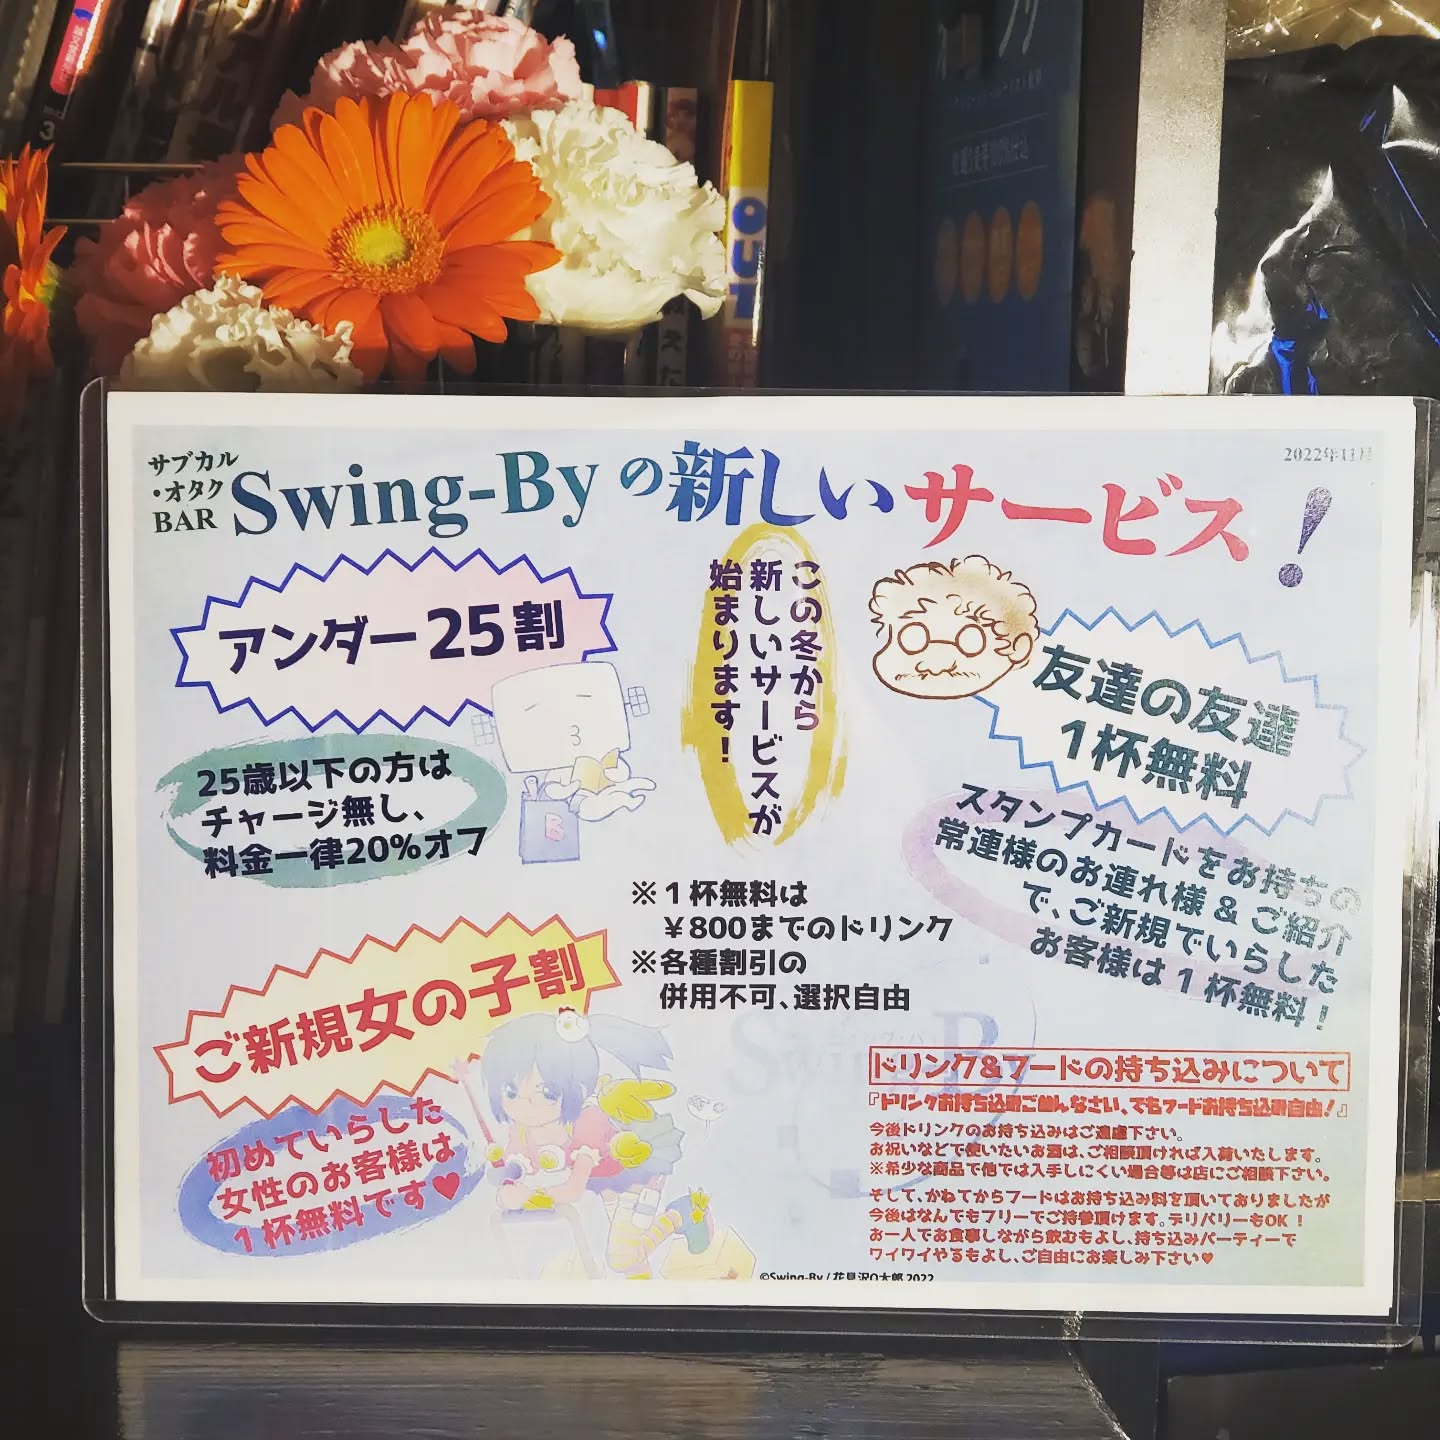 サブカル
・オタク
BAR
Swing-Byの新しいサービス！
2022年11月
アンダー25割
25歳以下の方は
チャージ無し、
料金一律20%オフ
この冬から
新しいサービスが
始まります！
友達の友達
1杯無料
スタンプカードをお持ちの
常連様のお連れ様&ご紹介
で、ご新規でいらした
お客様は1杯無料！
※1杯無料は
¥800までのドリンク
※各種割引の
併用不可、選択自由
ご新規女の子割
初めていらした
女性のお客様は
1杯無料です♥
ドリンク&フードの持ち込みについて
『ドリンクお持ち込みごめんなさい、でもフードお持ち込み自由！』
今後ドリンクのお持ち込みはご遠慮下さい。
お祝いなどで使いたいお酒は、ご相談頂ければ入荷いたします。
※希少な商品で他では入手しにくい場合等は店にご相談下さい。
そして、かねてからフードはお持ち込み料を頂いておりましたが
今後はなんでもフリーでご持参頂けます。デリバリーもOK！
お一人でお食事しながら飲むもよし、持ち込みパーティーで
ワイワイやるもよし、ご自由にお楽しみ下さい♥
©Swing-By / 花見沢Q太郎 2022
Swing-By
B
OUT
3